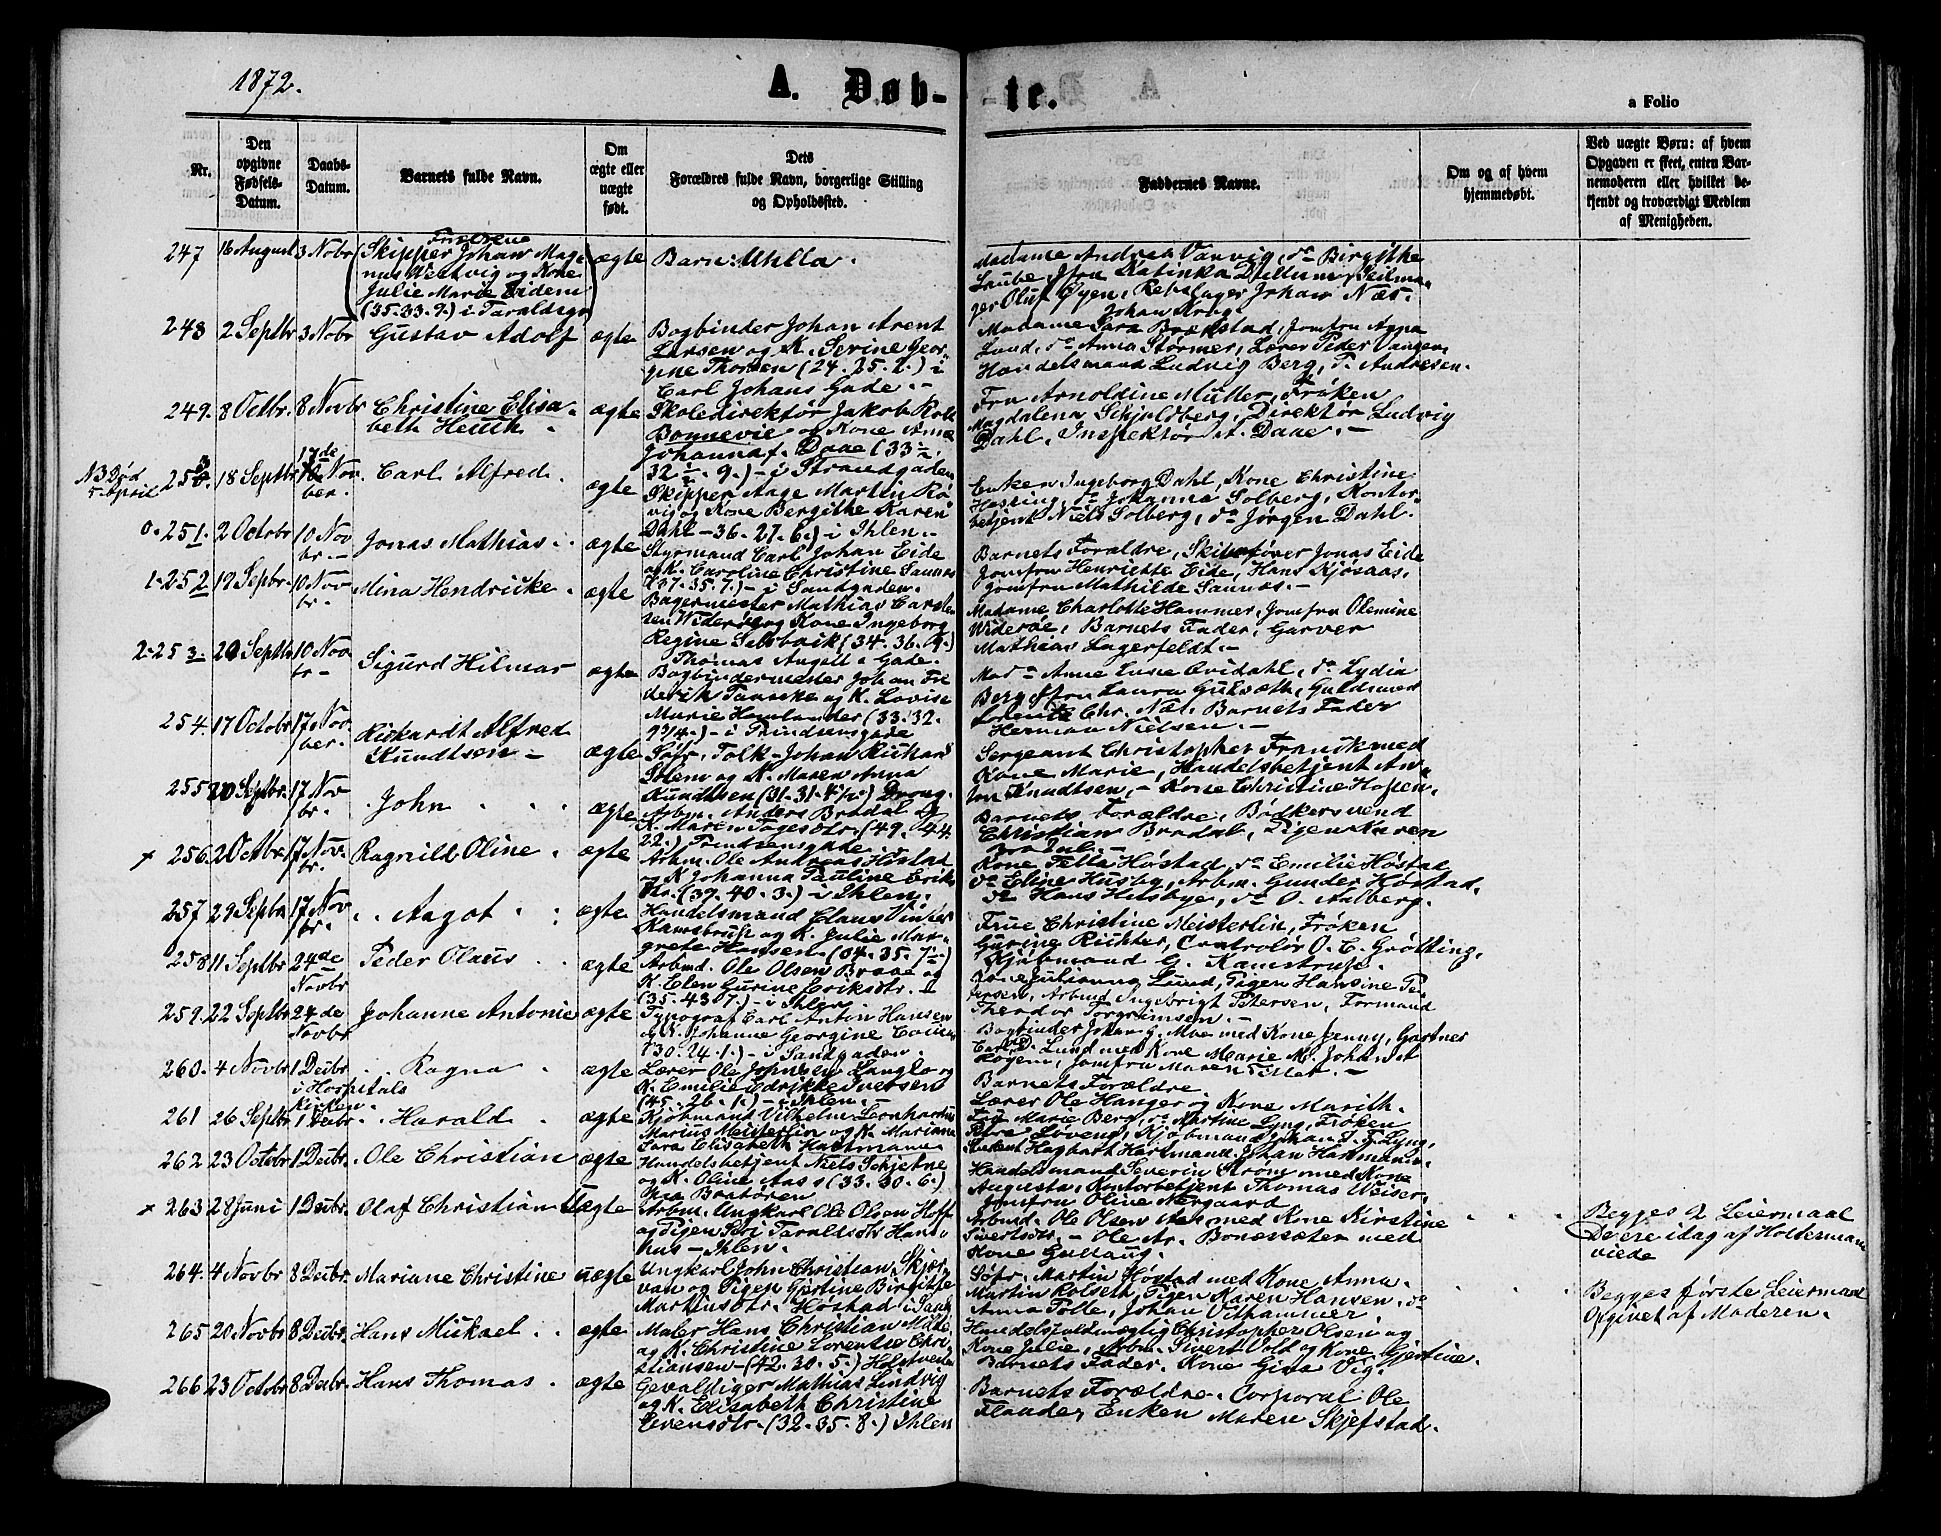 1872.
A. Døb-
te.
a Folio
Nr.
Den
opgivne
Fødsels-
Datum.
Daabs-
Datum.
Barnets fulde Navn.
Om
ægte eller
uægte
født.
Dets
Forældres fulde Navn, borgerlige Stilling
og Opholdssted.
Faddernes Navne.
Om og af hvem
hjemmedøbt.
Ved uægte Børn: af hvem
Opgaven er skeet, enten Bar-
nemoderen eller hvilket be-
kjendt og troværdigt Medlem
af Menigheden.
247 16 August 3 Nobr
Skipper Johan Mag-
nus Westvig og Kone
Julie Marie Eidem
(35.33.9.) i
ægte
Barn: Uhlla.
Madame Andrea Vanvig, do Birgithe
Laube, Jfru Katinka Seilma-
ger Oluf Øyen, Rebslager Johan Næs.
Johan Krog.
248 2 Septbr 3 Nobr
Gustav Adolf
ægte
Bogbinder Johan Arent
Larsen og K. Serine Geor-
gine Thorsen (24.25.2.) i
Carl Johans Gade.
Madame Sara Brækstad, Jomfru Anna
Lund, do Anna Størmer, Lærer Peder Vangen,
Handelsmand Ludvig Berg, P. Andresen.
249. 8 Octbr. 8 Novbr
Christine Elisa-
beth
ægte
Skoledirektør Jakob Roll
Bonnevie og Kone Anne
Johanna f. Daae (33
32 . 9.) - i Strandgaden
Fru Arnoldine Müller, Frøken
Magdalena Schjoldberg, Direktør Ludvig
Dahl, Inspektør A. Daae.
NB Død
5 April
250. 18 Septbr 17de Novber.
Carl Alfred.
ægte
Skipper Aage Martin Rø-
vig og Kone Bergithe Karen
Dahl - 36.27.6.) - i Ihlen.
Enken Ingeborg Dahl, Kone Christine
Hasting, do Johanna Solberg, Kontor-
betjent Niels Solberg, do Jørgen Dahl.
0. 251. 2 Octobr 10 Novbr.
Jonas Mathias
ægte
Styrmand Carl Johan Eide
og K. Caroline Christine Saunes
(37.35.7.) - i Sandgaden.
Barnets Forældre, Skibsfører Jonas Eide
Jomfru Henriette Eide, Hans Kjøsaas,
Jomfru Mathilde Saunes.
1. 252 19 Septbr. 10 Novbr.
Mina Hendrikke
ægte
Bagermester Mathias Carsten-
sen Widerøe og Kone Ingeborg
Regine Selsbaik (34.36.9.)
Thomas Angells Gade.
Madame Charlotte Hammer, Jomfru Olemine
Widerøe, Barnets Fader, Garver
Mathias Lagerfeldt.
2. 253. 20 Septbr 10 Novbr.
Sigurd Hilmar
ægte
Bogbindermester Johan Fre-
derik Fanseke og K. Lovise
Marie Hemlander (33.32.
9 3/4.) - i Prindsensgade
Mad Anne Qvidahl, do Lydia
Berg, Jfru Laura Gulsæth, Guldsmed
Lorents Chr. Næs, Barnets Fader
Herman Nielsen.
254. 17 Octobr 17 Novber.
Rickardt Alfred
Knudtsen
ægte
Søfr. Folk - Johan Richard
og K. Maren Anna
Knudtsen (31.31.4 1/2)
Sergeant Christopher Franck med
Kone Marie, Handelsbetjent An-
ton Knudtsen, Kone Christine Hopen.
255 20 Septbr. 17 Novbr.
John
ægte
Arbm. Anders Bradal og
K. Maren Tøgesdtr. (49.44
22.) Prindsensgade
Barnets Forældre, Bødkersvend
Christian Bradal, Pigen Karen
Bradal.
+ 256. 2 Octbr 17 Novbr.
Ragnild Oline
ægte
Arbm. Ole Andreas Høstad
og K Johanna Pauline Eriks-
dtr. (39.40.3.) - i Ihlen.
Kone Høstad, do Emilie Høstad
do Eline Husby, Arbm. Gunder Høstad,
do Hans Husbye, do O. Aalberg.
257 29 Septbr 17 Novbr.
Aagot
ægte
Handelsmand Claus Vinter
Kamstrup og K. Julie Mar-
grete Hansen (34.35.7 1/2)
Frue Christine Meisterlin, Frøken
Gurine Richter, Controlør O. C. Grøtting,
Kjøbmand G. Kamstrup.
258 11 Septbr 24de Novbr
Peder Olaus
ægte
Arbmd. Ole Olsen Braae og
K. Elen Gurine Eriksdtr.
(35.43 7.) - i Ihlen
Kone Julianna Lund, Pigen Hansine Pe-
tersen, Arbmd Ingebrigt Petersen, Formand
Theodor Torgrimsen.
259. 22 Septbr 24de Novbr
Johanne Antonie
ægte
Typograf Carl Anton Hansen
og K. Johanne Georgine
(30.24.1.) - i Sandgaden.
Bogbinder Johan G. Moe med Kone Jenny, Gartner
Carl D. Lund med Kone Marie M. Johanst
Rogem, Jomfru Maren Tiller.
260. 4 Novbr 1 Decbr
i Hospitals
kirken.
Ragna
ægte
Lærer Ole Johnsen Langlo og
K. Emilie Edrikke Iversen
(45.26.1.) - Ihlen.
Barnets Forældre
Lærer Ole Hanger og Kone Marith.
261 26 Septbr 1 Decbr.
Harald
ægte
Kjøbmand Vilhelm Leonhardus
Marius Meisterlin og K. Mariane
Sara Elisabeth Hartmann
Fru Marie Berg, do Martine Lyng, Frøken
Petra Løveng, Kjøbmand Johan D. F. Lyng,
Student Hagbart Hartmann, Johan Hartmann.
262 23 Octobr 1 Decbr.
Ole Christian
ægte
Handelsbetjent Niels Schjetne
og K. Oline Aas (33.30.6.)
paa Bratøren
Handelsmand Severin Strøm med Kone
Augusta, Kontorbetjent Thomas Weiser,
Jomfru Oline Nergaard
+ 263 28 Juni 1 Decbr.
Olaf Christian
uægte
Arbm. Ungkarl Ole Olsen Hoff
og Pigen Peri Taraldsdtr Hans-
hus - Ihlen.
Arbmd. Ole Olsen Aas med Kone Kirstine
Sivertsdtr. - Ole Ar. Bonessæter med
Kone Gullaug.
Begges 2 Leiermaal
De ere idag af Holtermann
viede
264. 4 Novbr 8 Decbr.
Mariane Christine
uægte
Ungkarl John Christian Skjær-
van og Pigen Gjertine Birgitte
Martinusdtr. Høstad i Sand
Søfr. Martin Høstad med Kone Anna.
Martin Rolseth, Pigen Karen Hansen, do
Anna Tolle, Johan Vidhammer
Begges første Leiermaal
Opgivet af Moderen.
265 20 Novbr 8 Decbr.
Hans Mickael
ægte
Maler Hans Christian
og K. Christine Lorentse Chri-
stiansen - (42.30.5.)
Handelsfuldmægtig Christopher Olsen og
Kone Julie, Arbm. Sivert Vold og Kone Gjertine.
Barnets Fader. Kone Gina Vig.
266 23 Octobr 8 Decbr.
Hans Thomas
ægte
Gevaldiger Mathias Lindvig
og K. Elisabeth Christine
Evensdtr. (32.35.8.) Ihlen
Barnets Forældre. Corporal Ole
Flaader, Enken Maren Skjefstad.